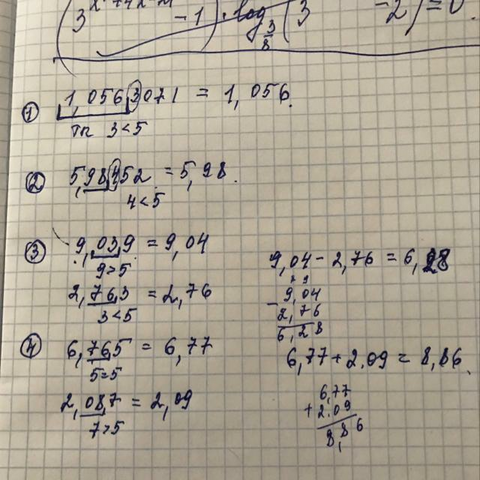 (3 - 1) · log 3/8 (3 - 2) = 0
① 1,0563071 = 1,056.
тк 3<5
② 5,98452 = 5,98.
4<5
③ 9,039 = 9,04
9>5
2,763 = 2,76
3<5
9,04 - 2,76 = 6,28
- 9,04
2,76
6,28
④ 6,765 = 6,77
5=5
2,087 = 2,09
7>5
6,77 + 2.09 = 8,86.
6,77
+ 2.09
8,86